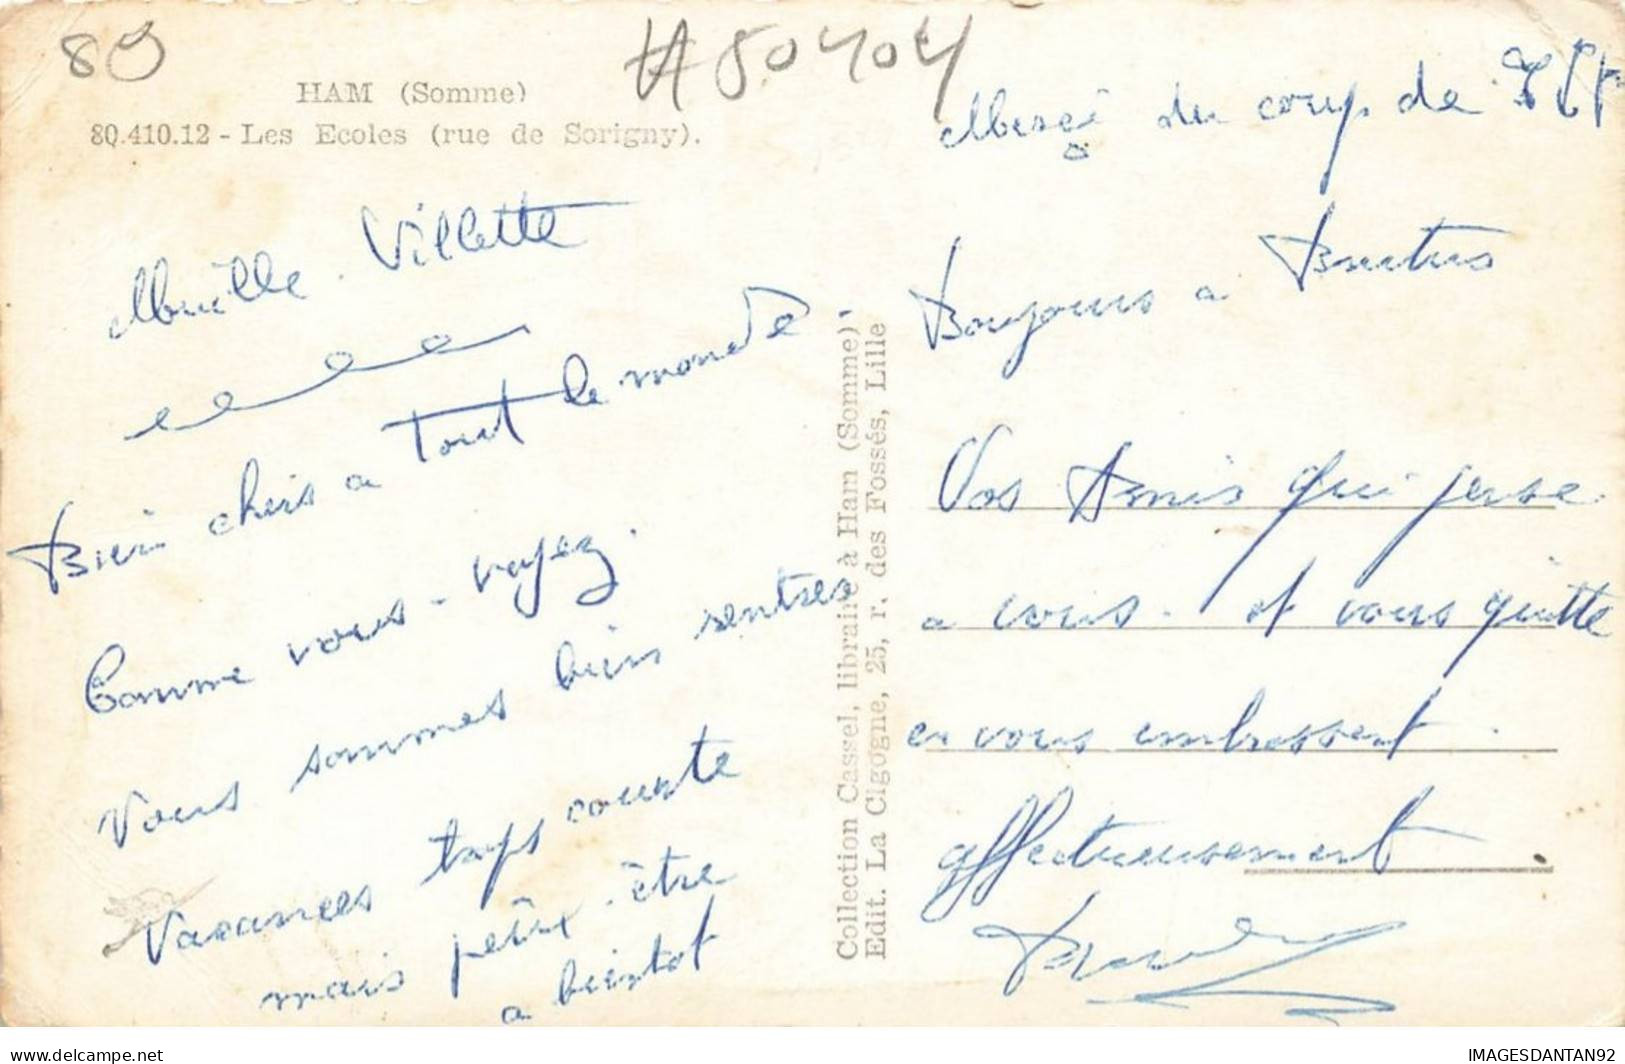 80
#50404
HAM (Somme)
80.410.12 - Les Ecoles (rue de Sorigny).
Muille. Villette
Bien chers a Tout le monde.
Comme vous - voyez.
Vous sommes bien rentres
Vacances trops courte
mais peûx-être
a bientot
Collection Cassel, libraire à Ham (Somme).
Edit. La Cigogne, 25, r. des Fossés, Lille
Merçi du coup de
Bonjours a Brutus
Vos Amis qui pense
a vous. et vous quitte
en vous embrassent.
affectueusement
DELCAMPE.NET
IMAGESDANTAN92